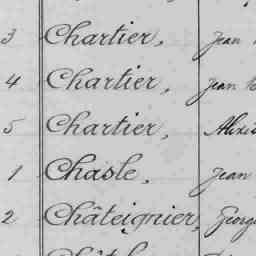 3 Chartier, Jean
4 Chartier, Jean
5 Chartier, Alexis
1 Chasle, Jean
2 Châteignier, Georg